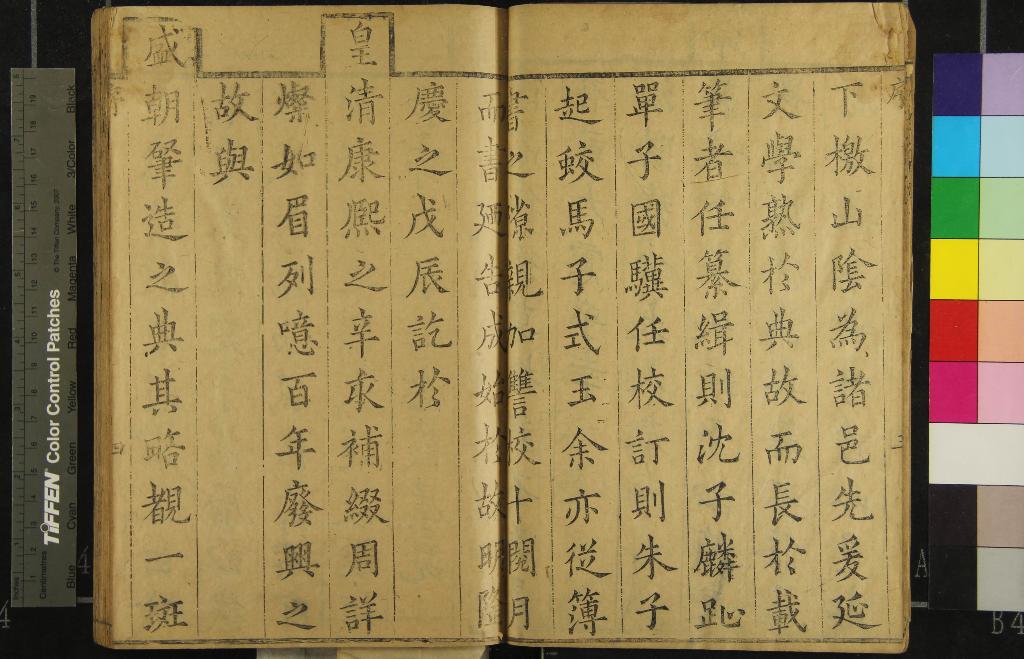 序
下檄山陰為諸邑先爰延
文學熟於典故而長於載
筆者任纂緝則沈子麟趾
單子國驥任校訂則朱子
起蛟馬子式玉余亦從簿
書之隙親加讐校十閱月
三
而書廼告成始於故明隆
慶之戊辰訖於
皇清康熙之辛亥補綴周詳
燦如眉列噫百年廢興之
故與
盛朝肇造之典其略覩一斑
序
四
TIFFEN Color Control Patches
© The Tiffen Company, 2007
Blue Cyan Green Yellow Red Magenta White 3/Color Black
Inches
Centimetres
A
B 4
4
4